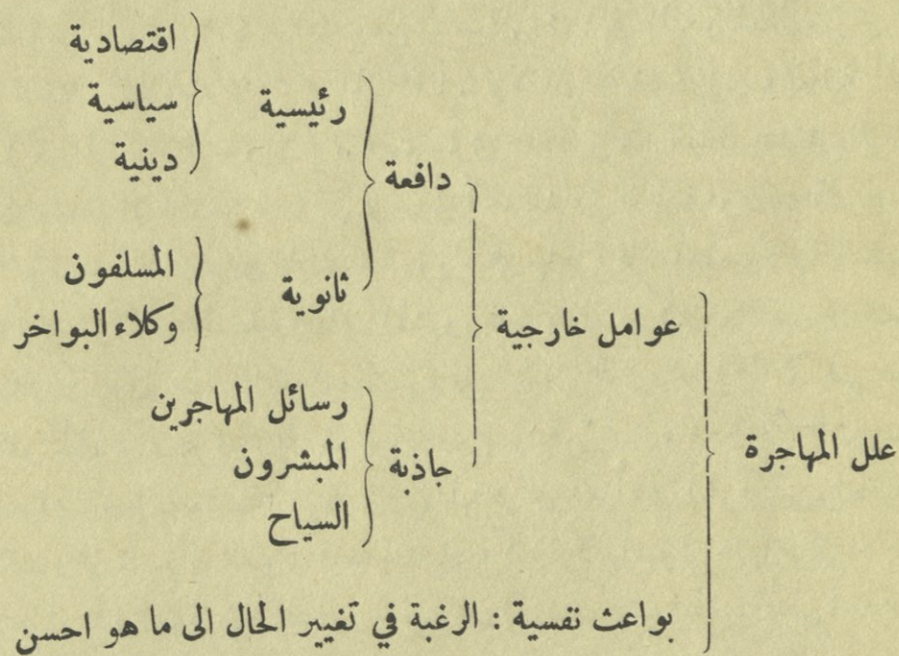 علل المهاجرة
عوامل خارجية
دافعة
رئيسية
اقتصادية
سياسية
دينية
ثانوية
المسلفون
وكلاء البواخر
جاذبة
رسائل المهاجرين
المبشرون
السياح
بواعث نفسية : الرغبة في تغيير الحال الى ما هو احسن